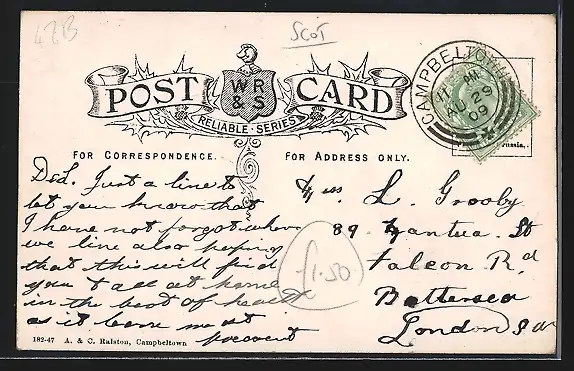 42B
SCOT
POST CARD
WR
& S
RELIABLE SERIES
CAMPBELTOWN
11 AM
AU 29
09
FOR CORRESPONDENCE.
FOR ADDRESS ONLY.
Russia.
Dd. Just a line to
let you know that
I have not forgot where
we live also hoping
that this will find
you & all at home
in the best of health
as it leave me at
pecent
£1.50
L. Grooby
89 Mantua St
Falcon Rd
Battersea
London S W
182-47 A. & C. Ralston, Campbeltown